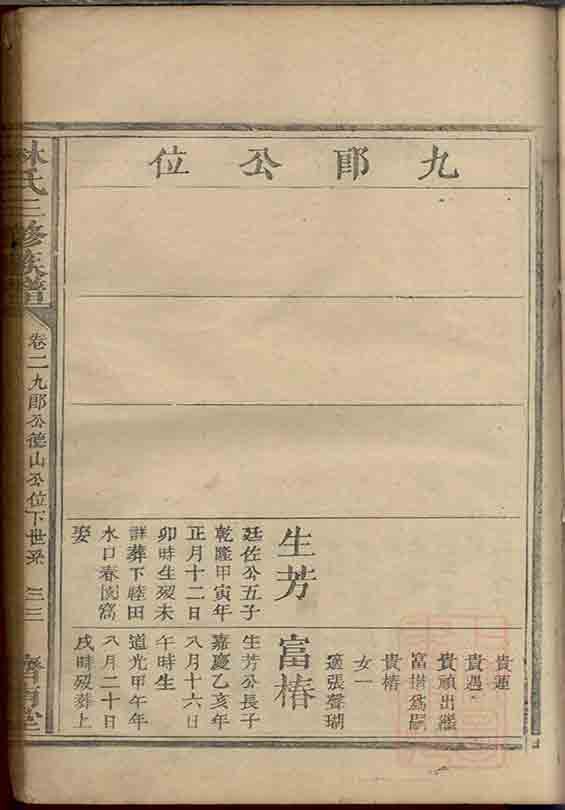 九郎公位
生芳
廷佐公五子
乾隆甲寅年
正月十二日
卯時生歿未
詳葬下睦田
水口春園窩
娶
貴蓮
貴遇
貴頑出繼
富楷爲嗣
貴椿
女一
適張聲瑚
富椿
生芳公長子
嘉慶乙亥年
八月十六日
午時生
道光甲午年
八月二十日
戌時歿葬上
林氏三修族譜
卷二九郎公德山公位下世系
三三
濟南堂